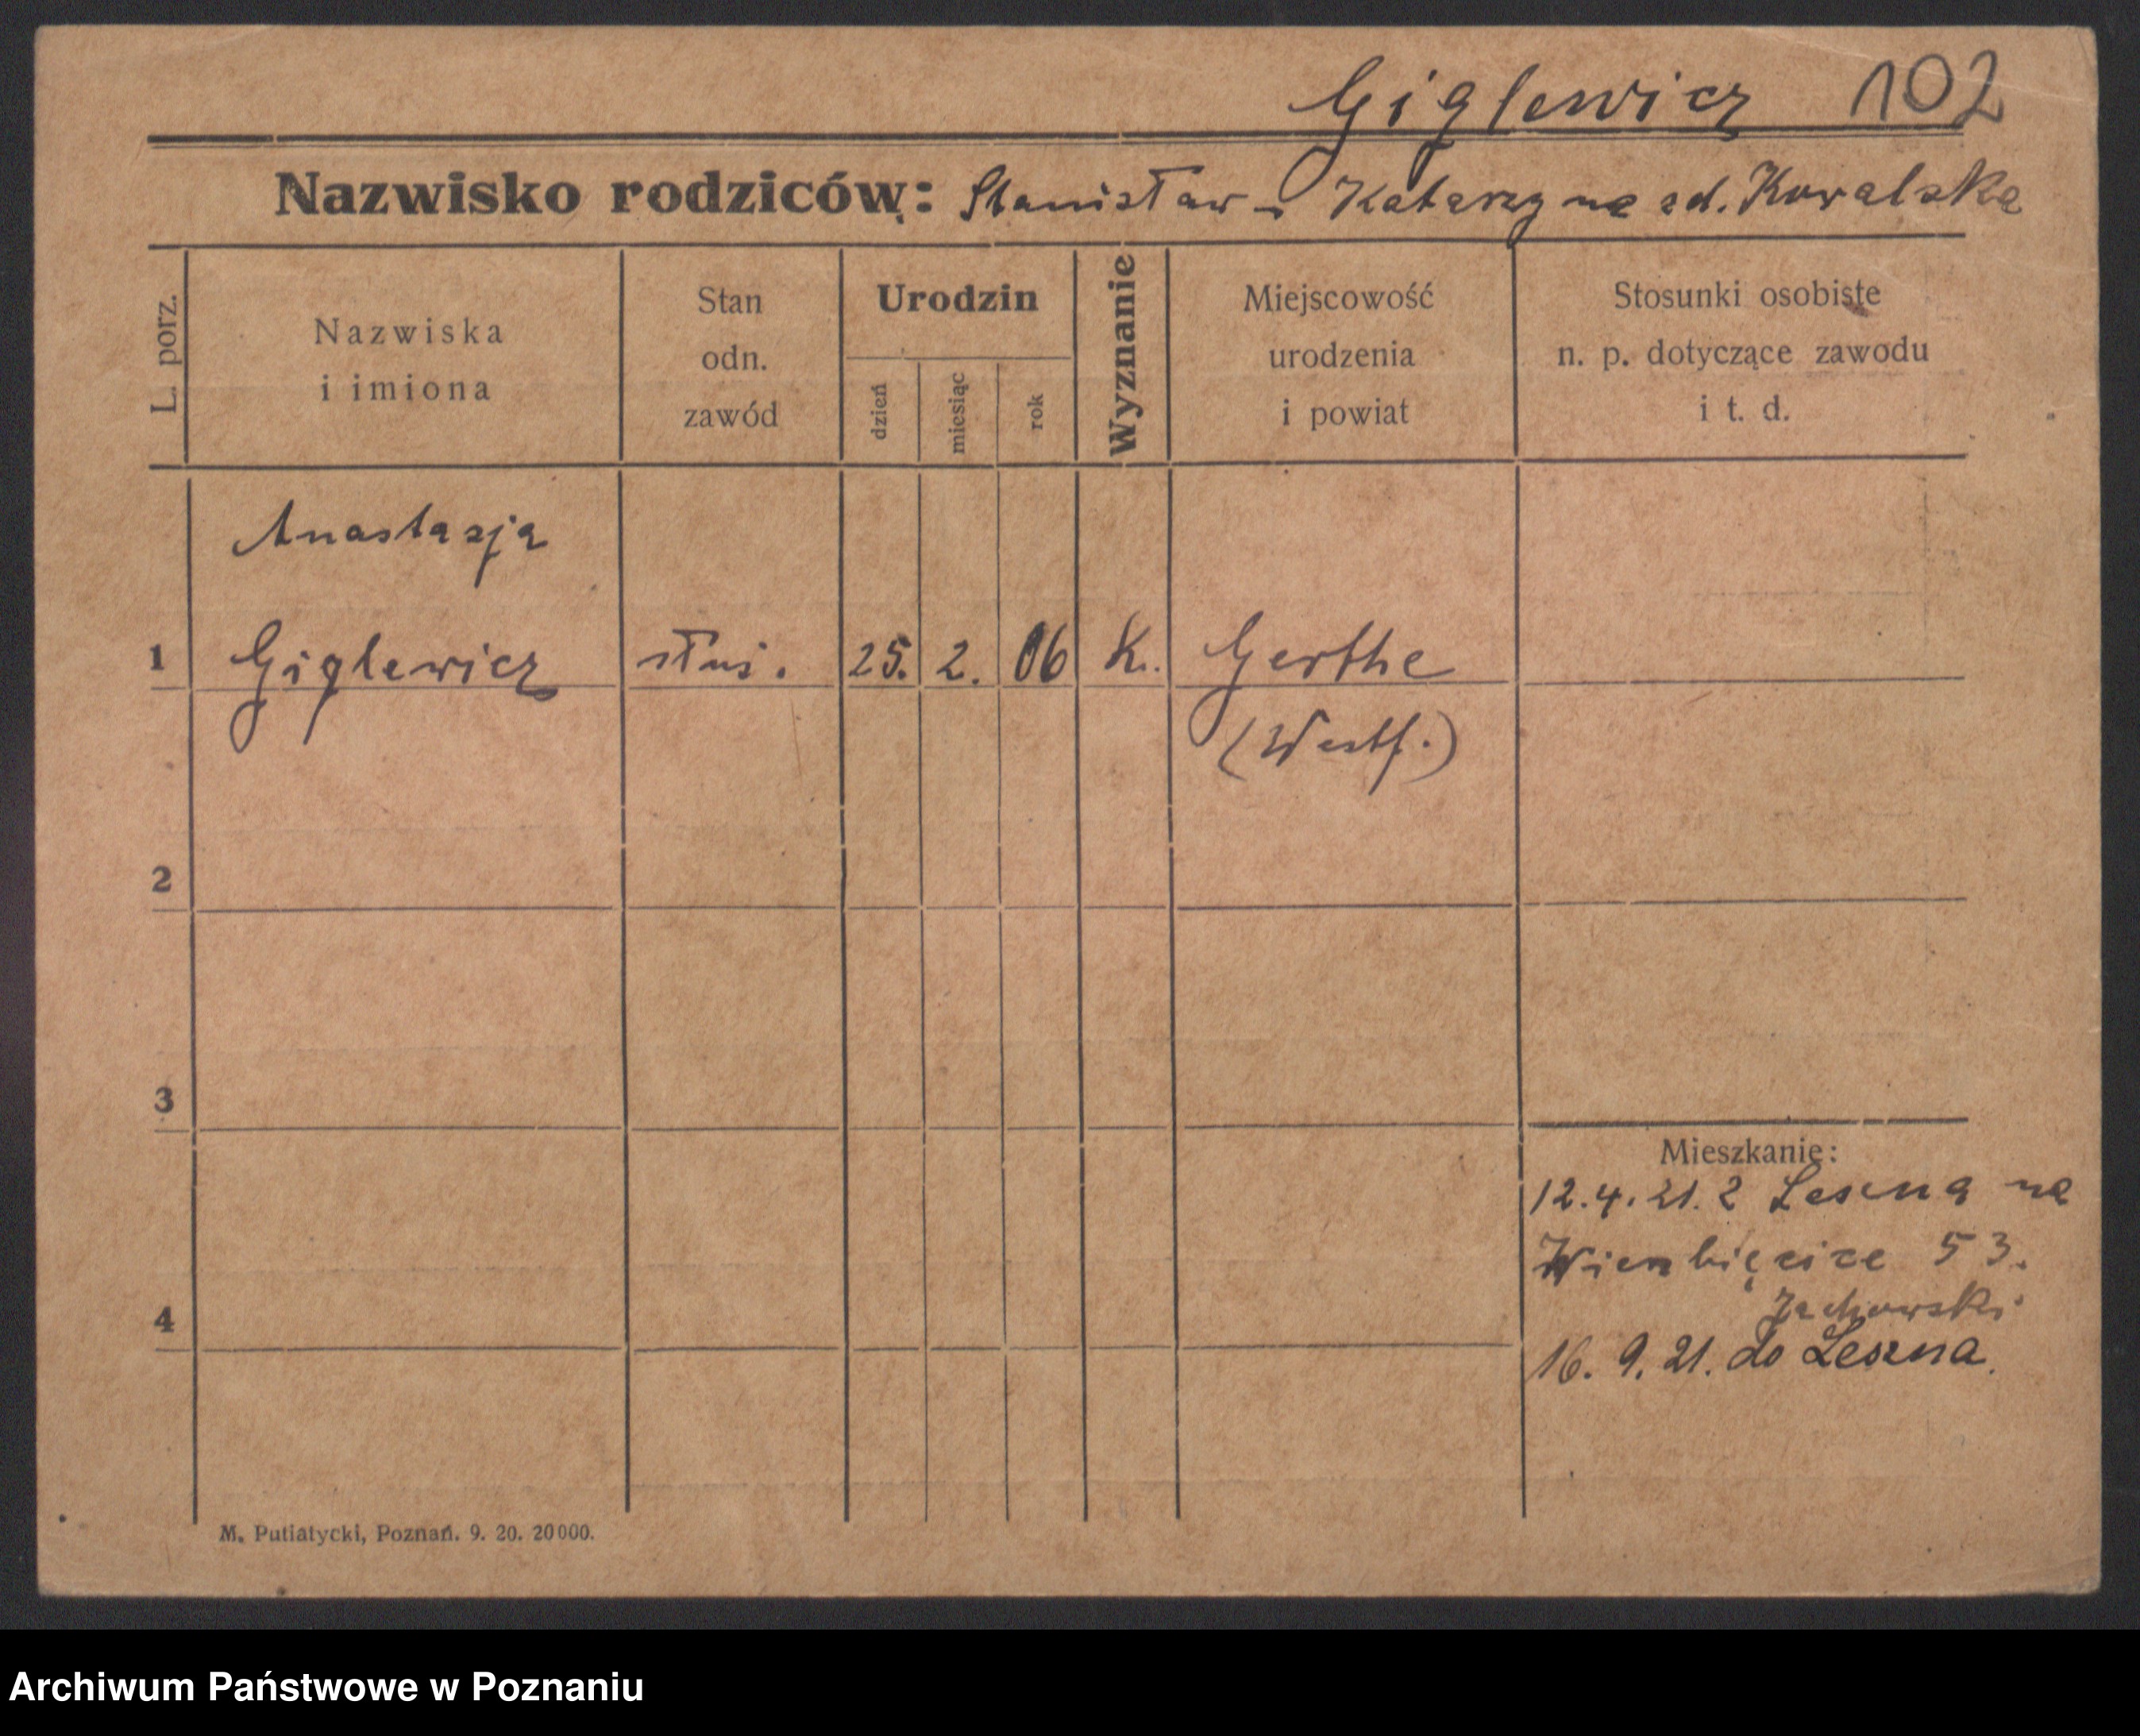 Giglewicz 102
Nazwisko rodziców: Stanisław - Katarzyna zd. Kowalska
L. porz.
Nazwiska
i imiona
Stan
odn.
zawód
Urodzin
dzień
miesiąc
rok
Wyznanie
Miejscowość
urodzenia
i powiat
Stosunki osobiste
n. p. dotyczące zawodu
i t. d.
Anastazja
1 Giglewicz służ. 25. 2. 06 K. Gerthe
(Westf.)
2
3
Mieszkanie:
12.4.21. z Leszna na
Wierzbięcice 53.
4
16. 9. 21. do Leszna.
M. Putiatycki, Poznań. 9. 20. 20000.
Archiwum Państwowe w Poznaniu